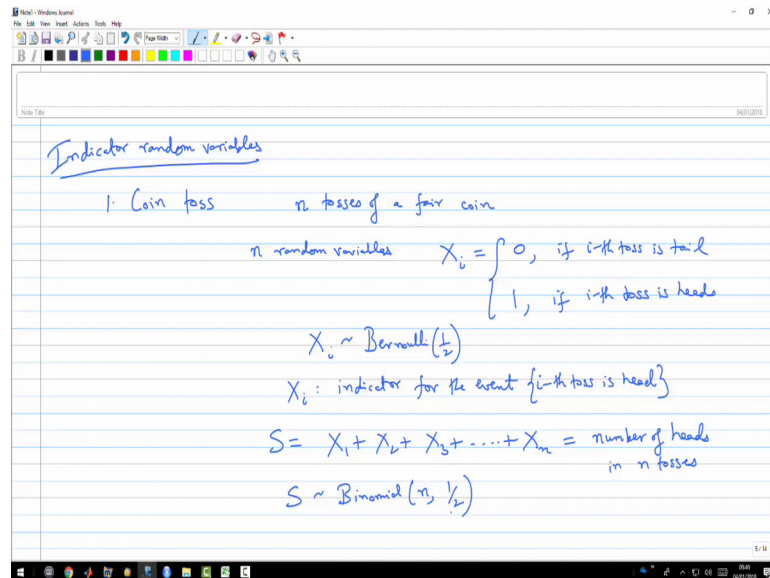 Note1 - Windows Journal
File Edit View Insert Actions Tools Help
Page Width
B I
Note Title
04/01/2018
Indicator random variables
1. Coin toss n tosses of a fair coin
n random variables X_i = { 0, if i-th toss is tail
1, if i-th toss is heads
X_i ~ Bernoulli (1/2)
X_i : indicator for the event {i-th toss is head}
S = X_1 + X_2 + X_3 + ..... + X_n = number of heads
in n tosses
S ~ Binomial (n, 1/2)
5/14
09:49
04/01/2018